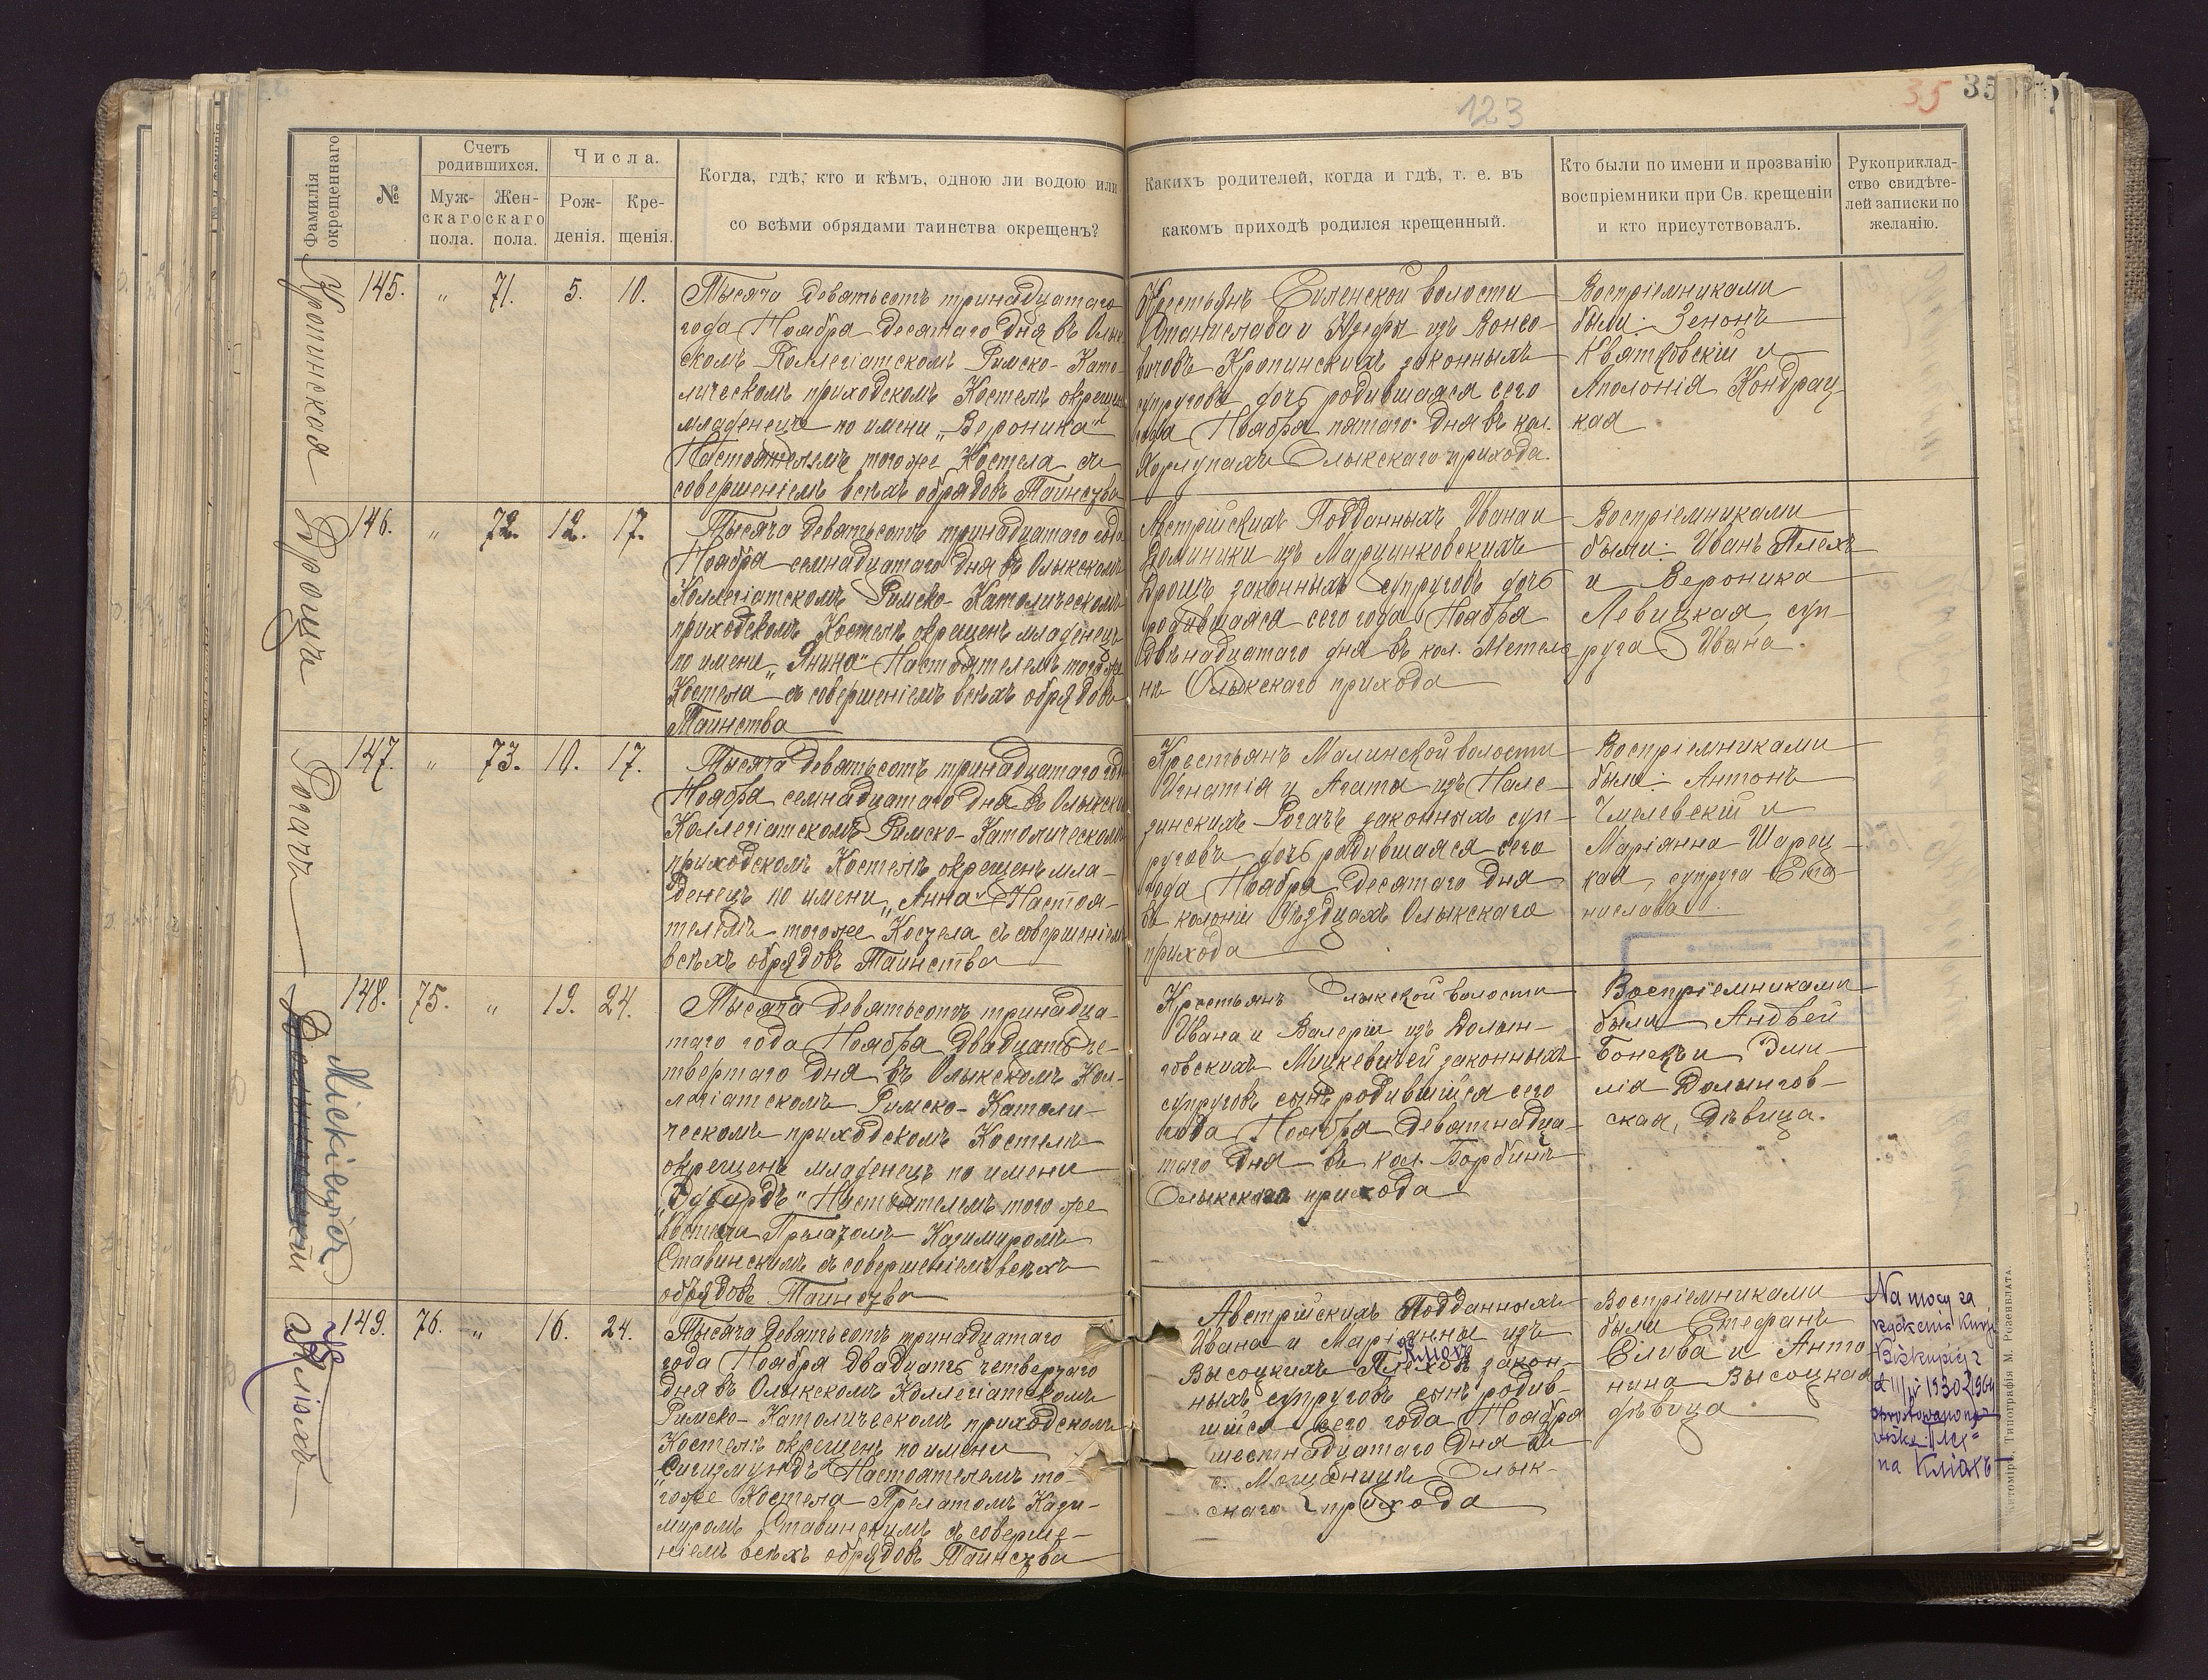 123
35
35
Фамилія окрещеннаго
№
Счетъ родившихся.
Муж-скаго пола.
Жен-скаго пола.
Числа.
Рож-денія.
Кре-щенія.
Когда, гдѣ, кто и кѣмъ, одною ли водою или
со всѣми обрядами таинства окрещенъ?
Какихъ родителей, когда и гдѣ, т. е. въ
какомъ приходѣ родился крещенный.
Кто были по имени и прозванію
воспріемники при Св. крещеніи
и кто присутствовалъ.
Рукоприклад-
ство свидѣте-
лей записки по
желанію.
Кропинская
145. " 71. 5. 10.
Тысяча девятьсотъ тринадцатаго
года Ноября десятаго дня въ Олык
скомъ Коллегіатскомъ Римско-Като
лическомъ приходскомъ Костелѣ окрещен
младенецъ по имени „Вероника"
Настоятелемъ тогоже Костела съ
совершеніемъ всѣхъ обрядовъ Таинства
Крестьянъ волости
Станислава и Юзефы изъ Вонсо-
вичовъ Кропинскихъ законныхъ
супруговъ дочь родившаяся сего
года Ноября пятаго дня въ кол.
Хорлупахъ Олыкскаго прихода.
Воспріемниками
были: Зенонъ
Квятковскій и
Аполонія Кондрац
кая
Дрощъ
146. " 72. 12. 17.
Тысяча девятьсотъ тринадцатаго года
Ноября семнадцатаго дня въ Олыкскомъ
Коллегіатскомъ Римско-Католическомъ
приходскомъ Костелѣ окрещенъ младенецъ
по имени „Янина" Настоятелемъ тогоже
Костела съ совершеніемъ всѣхъ обрядовъ
Таинства
Австрійскихъ Подданныхъ Ивана и
Доминики изъ Марцинковскихъ
Дрощъ законныхъ супруговъ дочь
родившаяся сего года Ноября
двѣнадцатаго дня въ кол. Метел
нѣ Олыкскаго прихода
Воспріемниками
были: Иванъ Плехъ
и Вероника
Левицкая суп-
руга Ивана.
Рогачъ
147. " 73. 10. 17.
Тысяча девятьсотъ тринадцатаго года
Ноября семнадцатаго дня въ Олыкском
Коллегіатскомъ Римско-Католическомъ
приходскомъ Костелѣ окрещенъ мла-
денецъ по имени „Анна" Настоя-
телемъ тогоже Костела съ совершеніемъ
всѣхъ обрядовъ Таинства
Крестьянъ Малинской волости
Игнатія и Агаты изъ Нале-
зинскихъ Рогачъ законныхъ суп-
руговъ дочь родившаяся сего
года Ноября десятаго дня
въ колоніи Уѣздцахъ Олыкскаго
прихода
Воспріемниками
были: Антонъ
Чмелевскій и
Маріанна Шарец-
кая, супруга Ста-
нислава.
Mickiewicz
148. 75. " 19. 24.
Тысяча девятьсотъ тринадца-
таго года Ноября двадцать че-
твертаго дня въ Олыкскомъ Кол-
легіатскомъ Римско-Католи-
ческомъ приходскомъ Костелѣ
окрещенъ младенецъ по имени
„Эдвардъ" Настоятелемъ того же
Костела Прелатомъ Казимиромъ
Ставинскимъ съ совершеніемъ всѣхъ
обрядовъ Таинства
Крестьянъ Олыкской волости
Ивана и Валеріи изъ Долин-
говскихъ Мицкевичей законныхъ
супруговъ сынъ родившійся сего
года Ноября девятнадца-
таго дня въ кол. Борбинѣ
Олыкскаго прихода
Воспріемниками
были Андрей
Бонекъ и Эми-
лія Долингов-
ская, дѣвица.
149. 76. " 16. 24.
Тысяча девятьсотъ тринадцатаго
года Ноября двадцать четвертаго
дня въ Олыкскомъ Коллегіатскомъ
Римско-Католическомъ приходскомъ
Костелѣ окрещенъ по имени
„Сигизмундъ" Настоятелемъ то-
гоже Костела Прелатомъ Кази-
миромъ Ставинскимъ съ соверше-
ніемъ всѣхъ обрядовъ Таинства
Австрійскихъ Подданныхъ
Ивана и Маріянны изъ
Высоцкихъ закон-
ныхъ супруговъ сынъ родив-
шійся сего года Ноября
шестнадцатаго дня въ
с. Мощаницѣ Олык-
скаго прихода
Воспріемниками
были Стефанъ
Слива и Анто
нина Высоцкая
дѣвица.
Na mocy za
rządzenia Kurji
Biskupiej z
d 11/IV 1930
sprostowano na-
zwisko
na Кліохъ
Житоміръ, Типографія М. Розенблата.